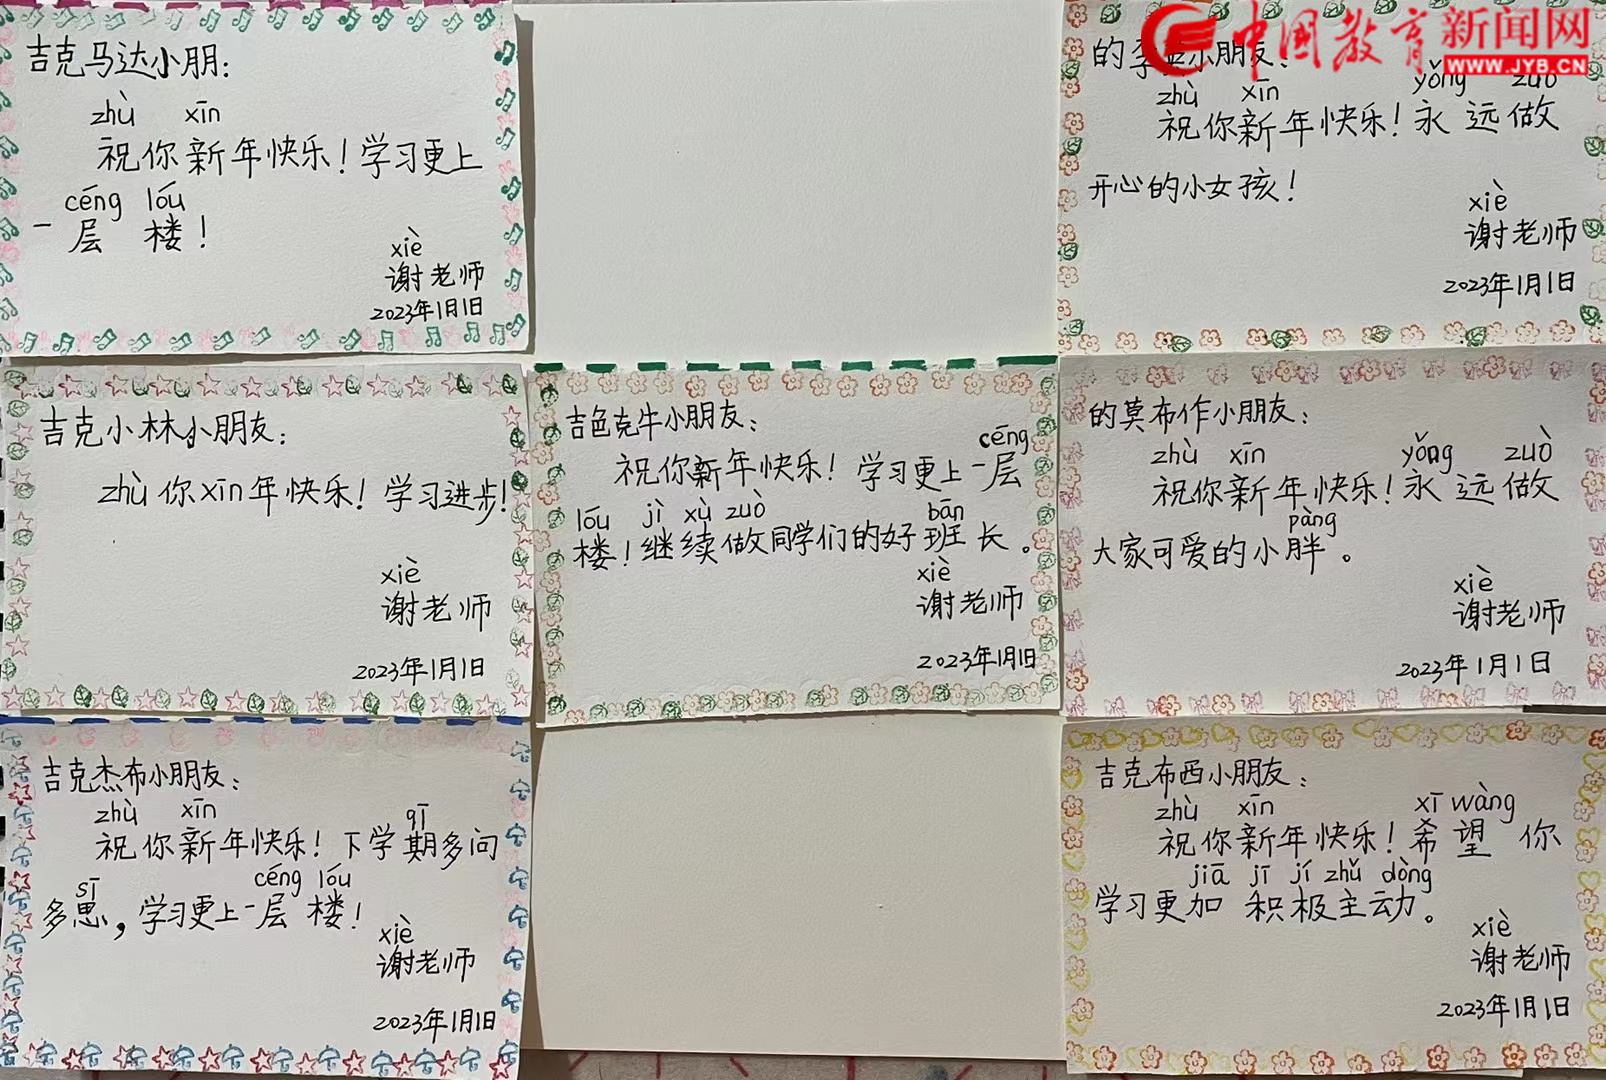 中国教育新闻网
WWW.JYB.CN
吉克马达小朋:
zhù xīn
祝你新年快乐!学习更上
céng lóu
一层楼!
xiè
谢老师
2023年1月1日
的李 小朋友:
zhù xīn yǒng zuò
祝你新年快乐!永远做
开心的小女孩!
xiè
谢老师
2023年1月1日
吉克小林小朋友:
zhù你xīn年快乐!学习进步!
xiè
谢老师
2023年1月1日
吉色克牛小朋友:
céng
祝你新年快乐!学习更上一层
lóu jì xù zuò bān
楼!继续做同学们的好班长。
xiè
谢老师
2023年1月1日
的莫布作小朋友:
zhù xīn yǒng zuò
祝你新年快乐!永远做
pàng
大家可爱的小胖。
xiè
谢老师
2023年1月1日
吉克杰布小朋友:
zhù xīn qī
祝你新年快乐!下学期多问
sī céng lóu
多思,学习更上一层楼!
xiè
谢老师
2023年1月1日
吉克布西小朋友:
zhù xīn xī wàng
祝你新年快乐!希望你
jiā jī jí zhǔ dòng
学习更加积极主动。
xiè
谢老师
2023年1月1日